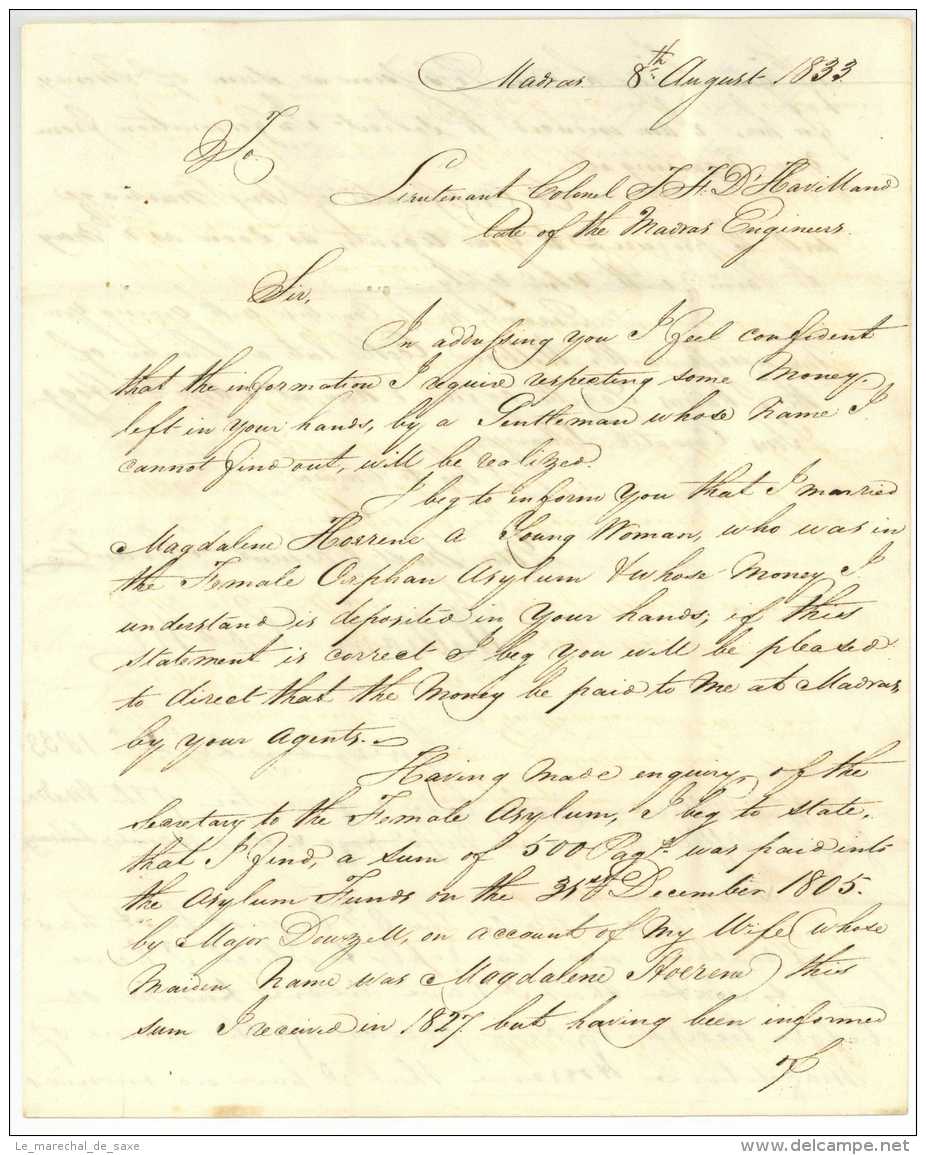 Madras 8th August 1833.
To
Lieutenant Colonel T. F. D'Havilland
late of the Madras Engineers.
Sir,
In addressing you I feel confident
that the information I require respecting some Money,
left in your hands, by a Gentleman whose name I
cannot find out, will be realized.
I beg to inform you that I married
Magdalene Horrene a Young Woman, who was in
the Female Orphan Asylum & whose Money I
understand is deposited in your hands; if this
statement is correct I beg you will be pleased
to direct that the Money be paid to me at Madras,
by your Agents.
Having made enquiry of the
Secretary to the Female Asylum, I beg to state,
that I find, a sum of 500 Pags. was paid into
the Asylum Funds on the 31st December 1805.
by Major Dowzell, on account of my Wife (whose
Maiden Name was Magdalene Horrene) this
sum I received in 1827, but having been informed
of
Le_marechal_de_saxe
delcampe.net